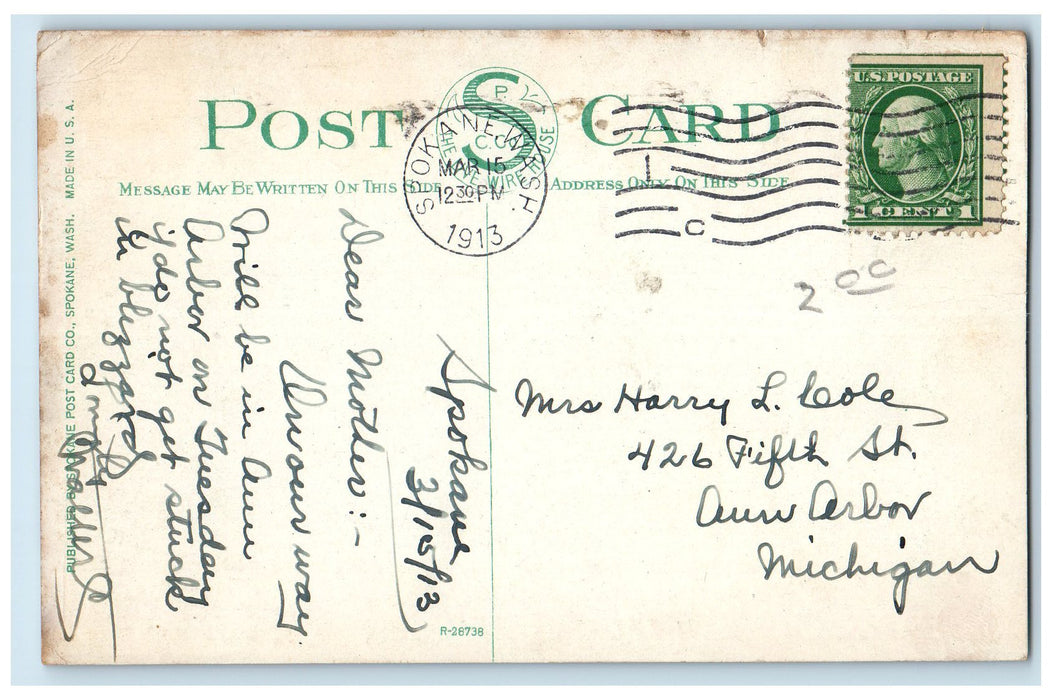 POST CARD
S
P.
C. CO.
THE WIRE HOUSE
MESSAGE MAY BE WRITTEN ON THIS SIDE
ADDRESS ONLY ON THIS SIDE
SPOKANE, WASH.
MAR 15
12 30 PM
1913
1
C
U.S. POSTAGE
1 CENT 1
2 00
Spokane
3/15/13
Dear Mother:-
On our way.
Will be in Ann
Arbor on Tuesday
if do not get stuck
in blizzard
Mrs Harry L. Cole
426 Fifth St.
Ann Arbor
Michigan
R-28738
PUBLISHED BY SPOKANE POST CARD CO., SPOKANE, WASH. MADE IN U.S.A.